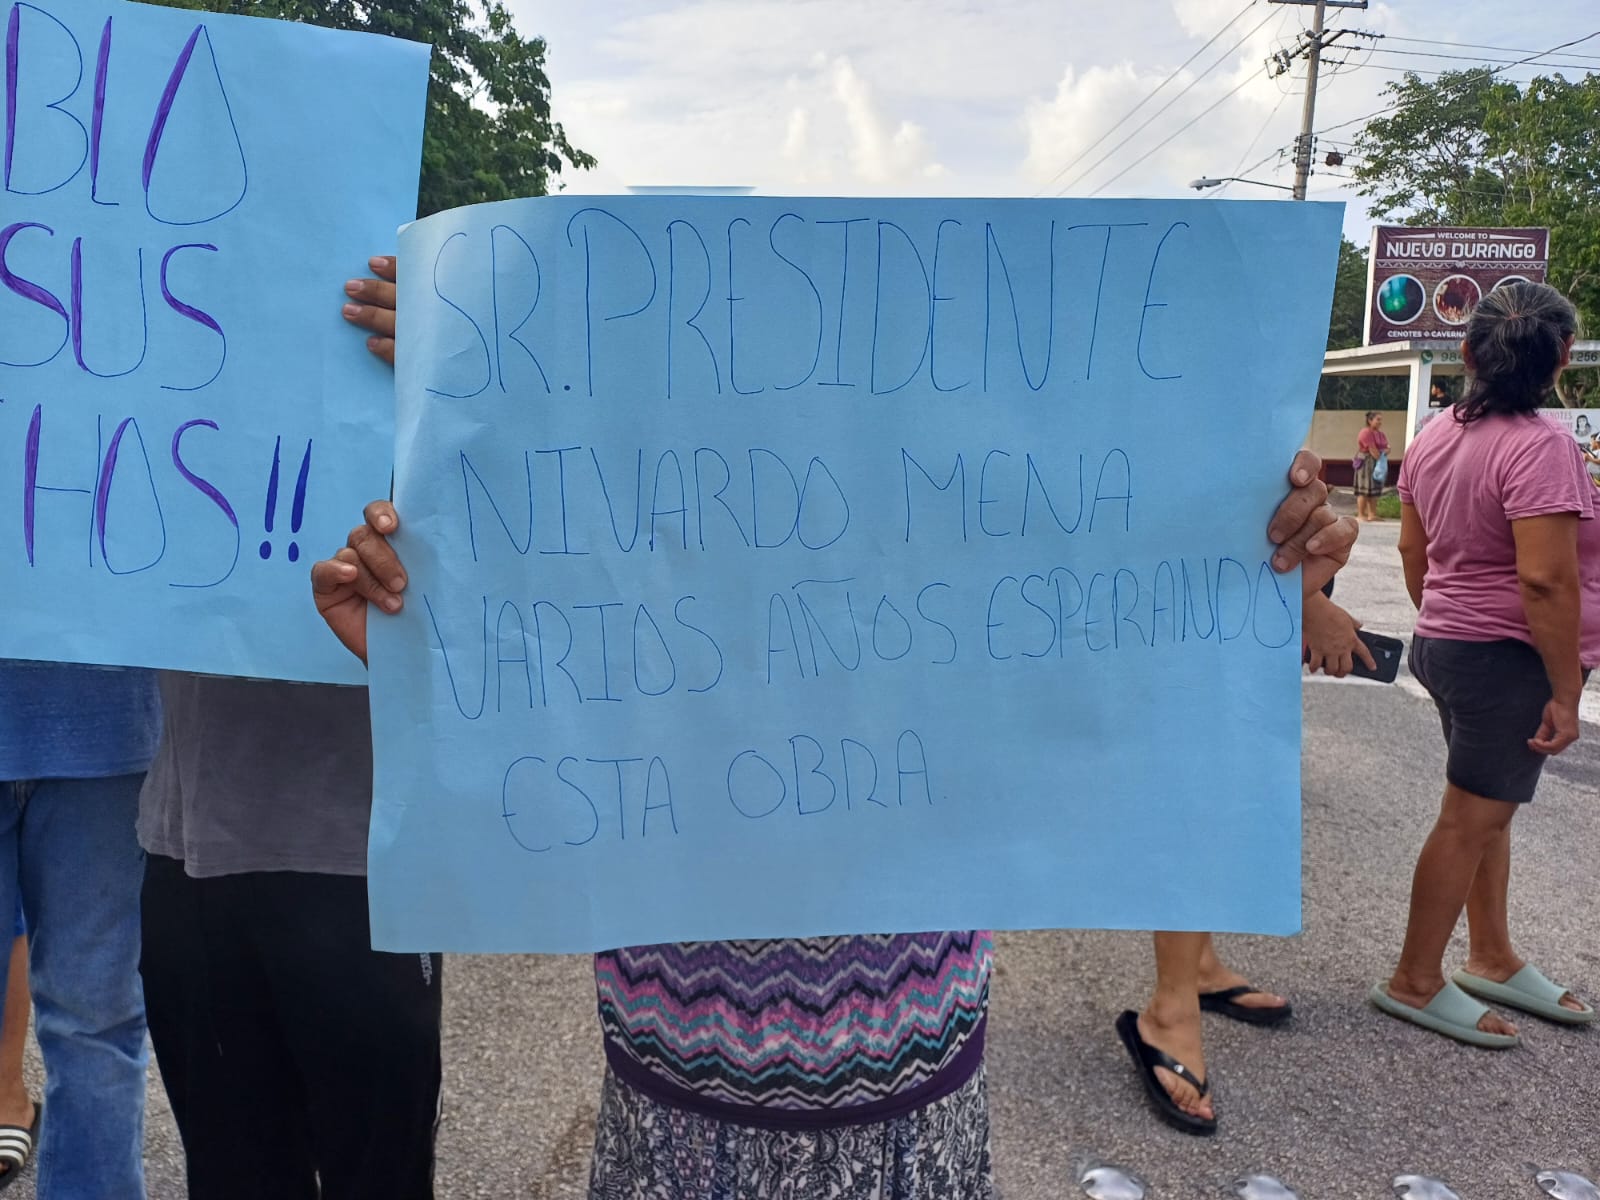 BLO
SUS
HOS!!
SR. PRESIDENTE
NIVARDO MENA
VARIOS AÑOS ESPERANDO
ESTA OBRA.
WELCOME TO
NUEVO DURANGO
CENOTES
984
256
CENOTES